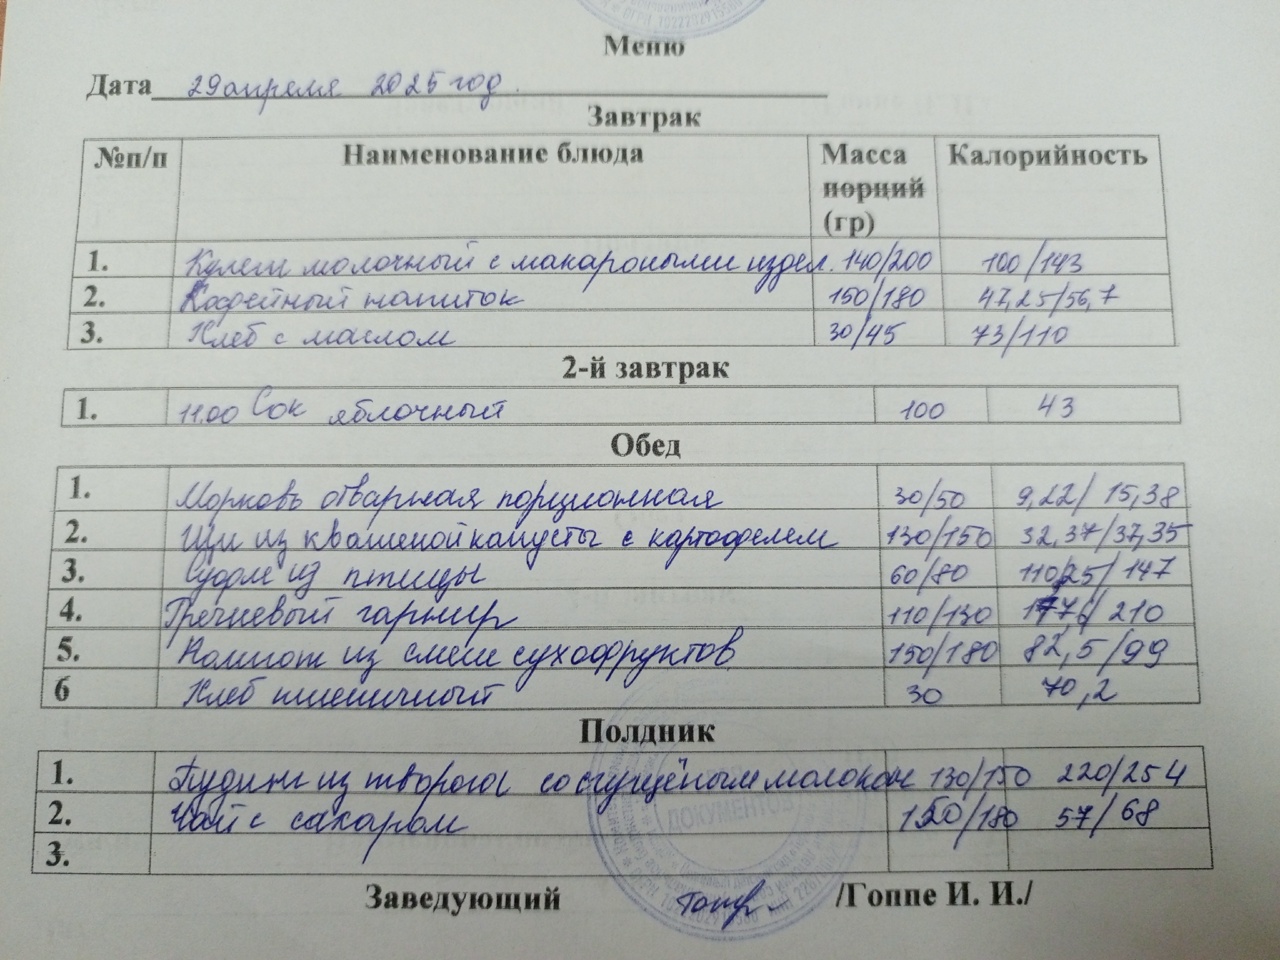 Меню
Дата 29 апреля 2025 год.
Завтрак
№п/п Наименование блюда Масса порций (гр) Калорийность
1. Кулеш молочный с макароными издел. 140/200 100/143
2. Кофейный напиток 150/180 47,25/56,7
3. Хлеб с маслом 30/45 73/110
2-й завтрак
1. 11.00 Сок яблочный 100 43
Обед
1. Морковь отварная порционная 30/50 9,22/15,38
2. Щи из квашеной капусты с картофелем 130/150 32,37/37,35
3. Суфле из птицы 60/80 110,25/147
4. Гречневый гарнир 110/130 210
5. Компот из смеси сухофруктов 150/180 82,5/99
6 Хлеб пшеничный 30 70,2
Полдник
1. Пудинг из творога со сгущёным молоком 130/150 220/254
2. Чай с сахаром 150/180 57/68
3.
ДОКУМЕНТОВ
Заведующий /Гоппе И. И./